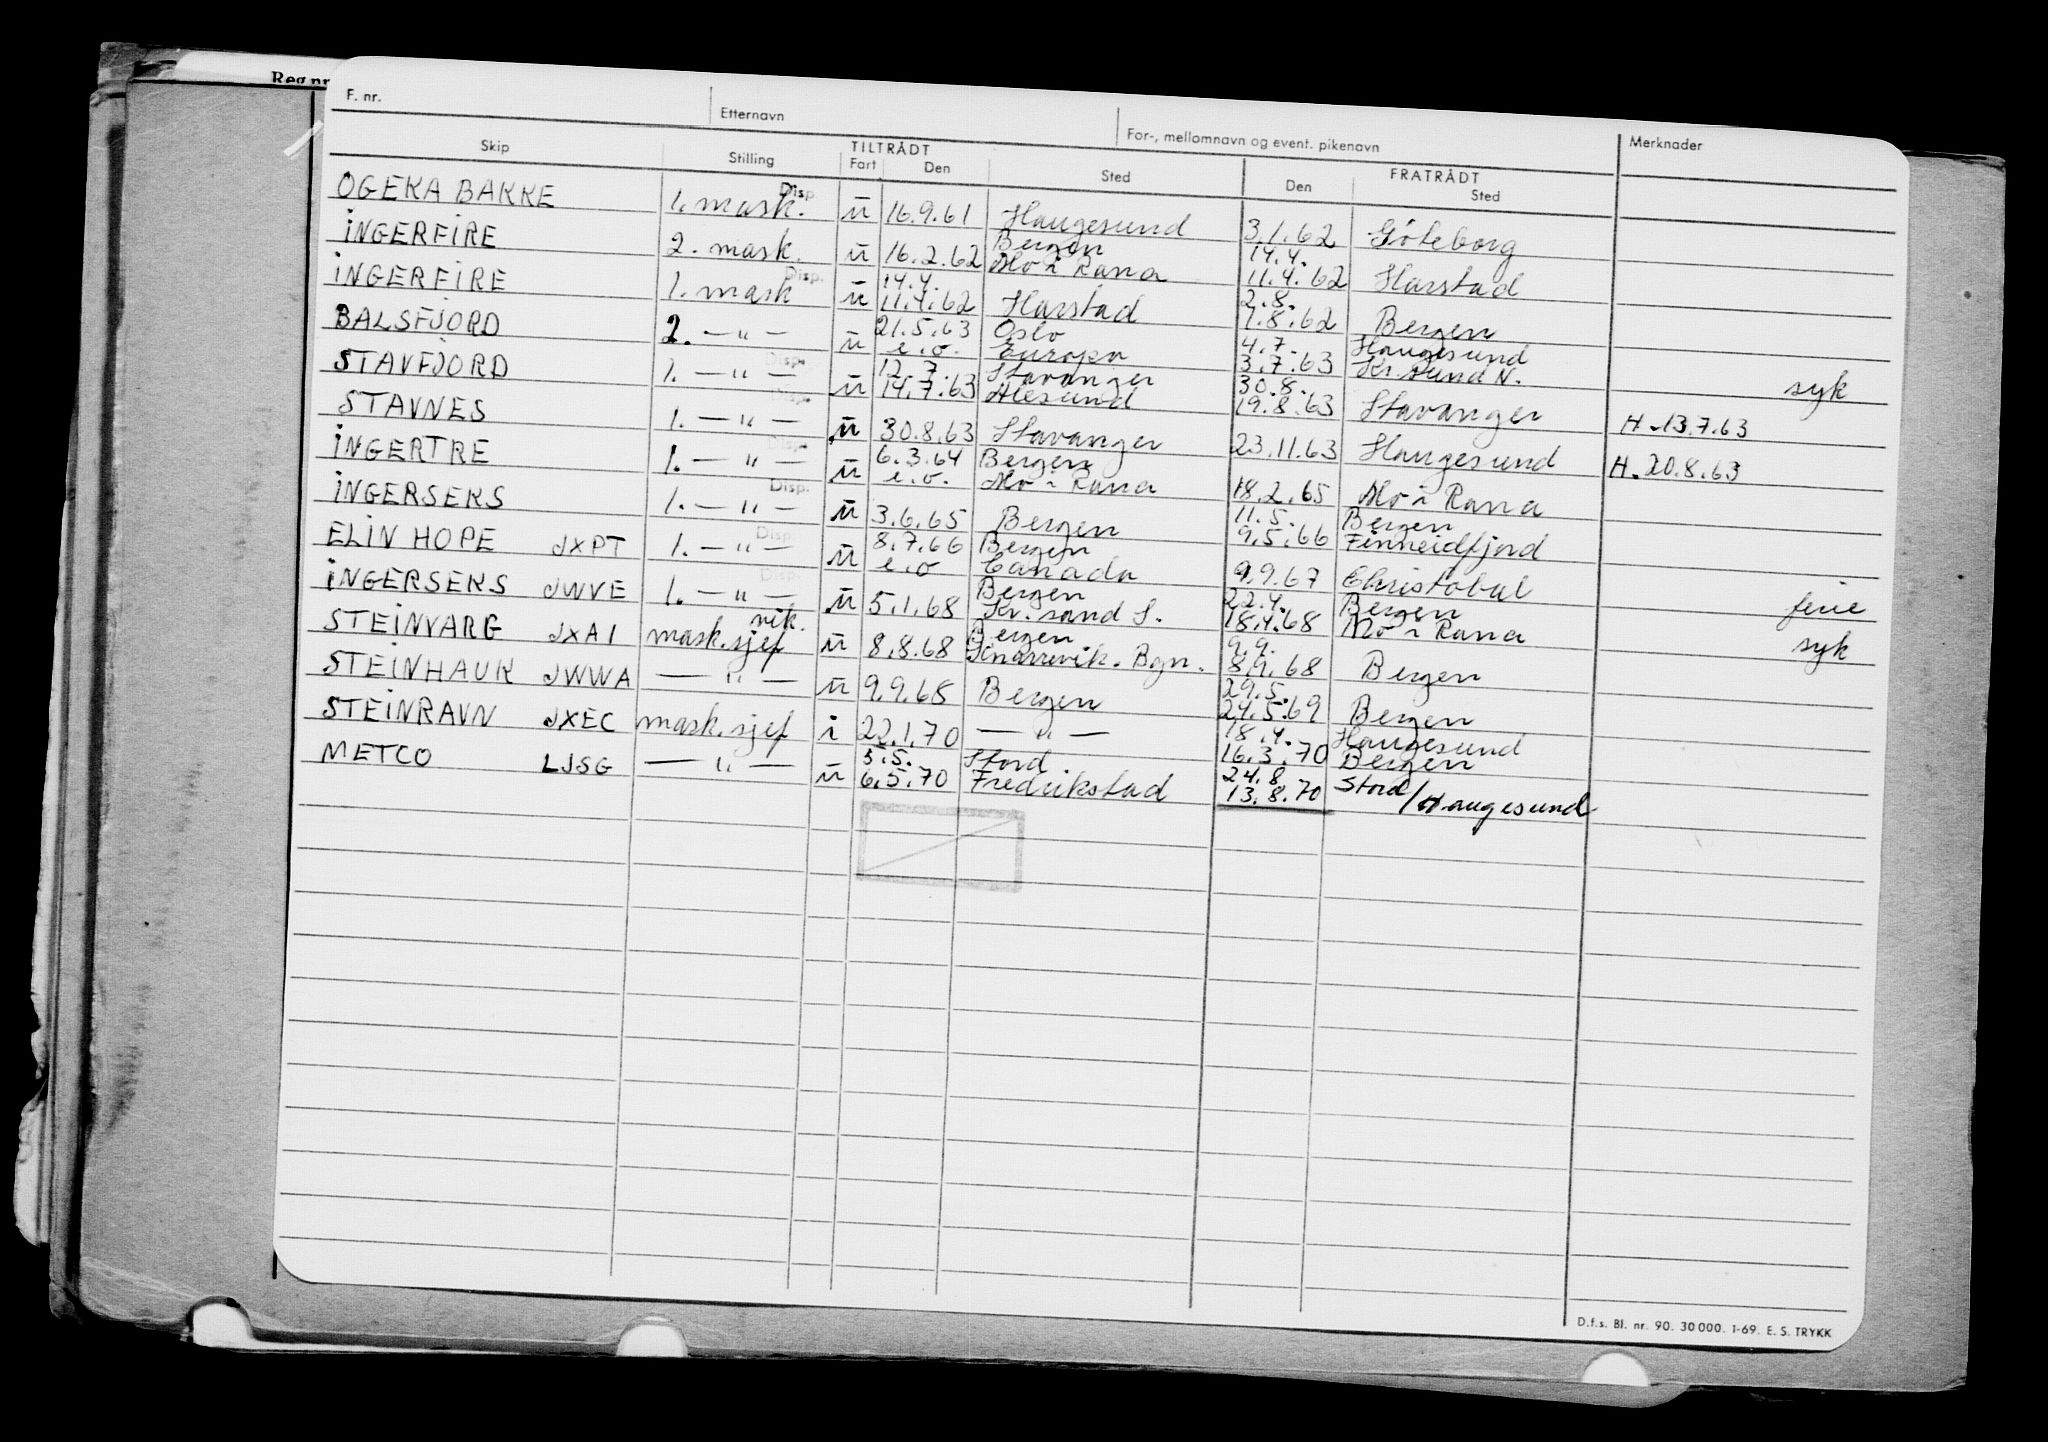 Reg.nr
F. nr. Etternavn For-, mellomnavn og event. pikenavn Merknader
Skip Stilling TILTRÅDT Fart Den Sted FRATRÅDT Den Sted
OGEKA BAKKE 1. mask. Disp. ū 16.9.61 Haugesund 3.1.62 Göteborg
INGERFIRE 2. mask. ū 16.2.62 Bergen Mo i Rana 14.4. 11.4.62 Harstad
INGERFIRE 1. mask Disp. ū 14.4. 11.4.62 Harstad 2.8. 1.8.62 Bergen
BALSFJORD 2. — " — ū 21.5.63 e.o. Oslo Europa 4.7. 3.7.63 Haugesund Kr.sund N. syk
STAVFJORD 1. — " — Disp. ū 12.7. 14.7.63 Stavanger Ålesund 30.8. 19.8.63 Stavanger H. 13.7.63
STAVNES 1. — " — Disp. ū 30.8.63 Stavanger 23.11.63 Haugesund H. 20.8.63
INGERTRE 1. — " — Disp. ū 6.3.64 e.o. Bergen Mo i Rana 18.2.65 Mo i Rana
INGERSEKS 1. — " — Disp. ū 3.6.65 Bergen 11.5. 9.5.66 Bergen Finneidfjord
ELIN HOPE JXPT 1. — " — Disp. ū 8.7.66 e.o Bergen Canada 9.9.67 Christobal ferie
INGERSEKS JWVE 1. — " — Disp. ū 5.1.68 Bergen Kr.sand S. 22.4. 18.4.68 Bergen Mo i Rana syk
STEINVARG JXAI mask.sjef vik. ū 8.8.68 Bergen Knarrevik. Bgn. 9.9. 8.9.68 Bergen
STEINHAUK JWWA — " — ū 9.9.68 Bergen 29.5. 24.5.69 Bergen
STEINRAVN JXEC mask.sjef i 22.1.70 — " — 18.4. 16.3.70 Haugesund Bergen
METCO LJSG — " — ū 5.5. 6.5.70 Stord Fredrikstad 24.8 13.8.70 Stord/Haugesund
D.f.s. Bl. nr. 90. 30 000. 1-69. E. S. TRYKK